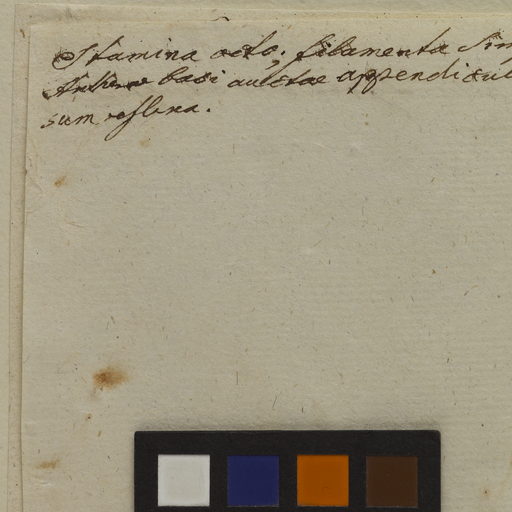 Stamina octo; filamenta Sim
Antherae basi auctae appendicul
sum reflexa.